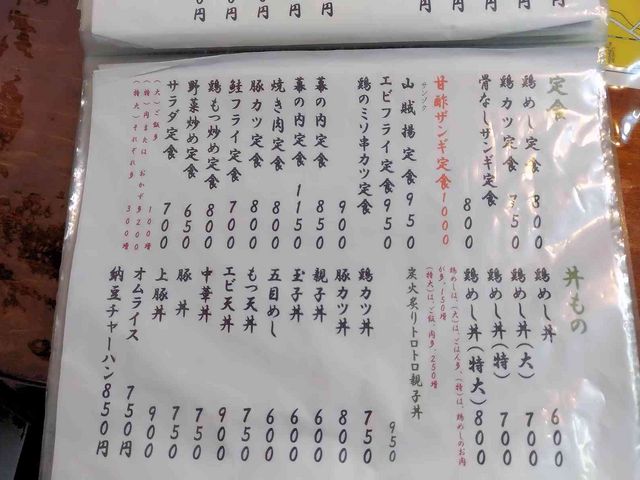 定食
鶏めし定食 800
鶏カツ定食 750
骨なしザンギ定食 800
甘酢ザンギ定食 1000
サンゾク
山賊揚定食 950
エビフライ定食 950
鶏のミソ串カツ定食 900
幕の内定食 850
幕の内定食 1150
焼き肉定食 800
豚カツ定食 800
鮭フライ定食 700
鶏もつ炒め定食 800
野菜炒め定食 650
サラダ定食 700
(大)ご飯多 100増
(特)肉または、おかず多200増
(特大)それぞれ多 300増
丼もの
鶏めし丼 600
鶏めし丼(大) 700
鶏めし丼(特) 700
鶏めし丼(特大) 800
鶏めしは、(大)は、ごはん多、(特)は、鶏めしのお肉
が多、150増
(特大)は、ご飯、肉多、250増
炭火炙りトロトロ親子丼 950
鶏カツ丼 750
豚カツ丼 800
親子丼 600
玉子丼 600
五目めし 600
もつ丼 750
エビ天丼 900
中華丼 750
豚丼 750
上豚丼 900
オムライス 750円
納豆チャーハン 850円